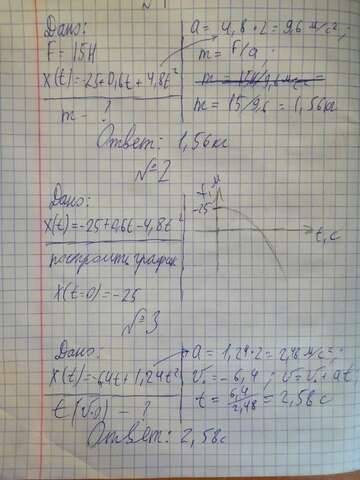 Дано:
F = 15Н
x(t)=-25+0,6t+4,8t²
m - ?
a = 4,8·2 = 9,6 м/с²;
m = F/a;
m = 15/9,6 = 1,56кг
Ответ: 1,56кг
№2
Дано:
x(t)=-25+0,6t-4,8t²
построить график
x(t=0)=-25
-25
t,с
№3
Дано:
x(t)=-6,4t+1,24t²
t(v=0) - ?
a = 1,24·2 = 2,48 м/с²;
v₀ = -6,4; v=v₀+at
t = 6,4/2,48 = 2,58 с
Ответ: 2,58с